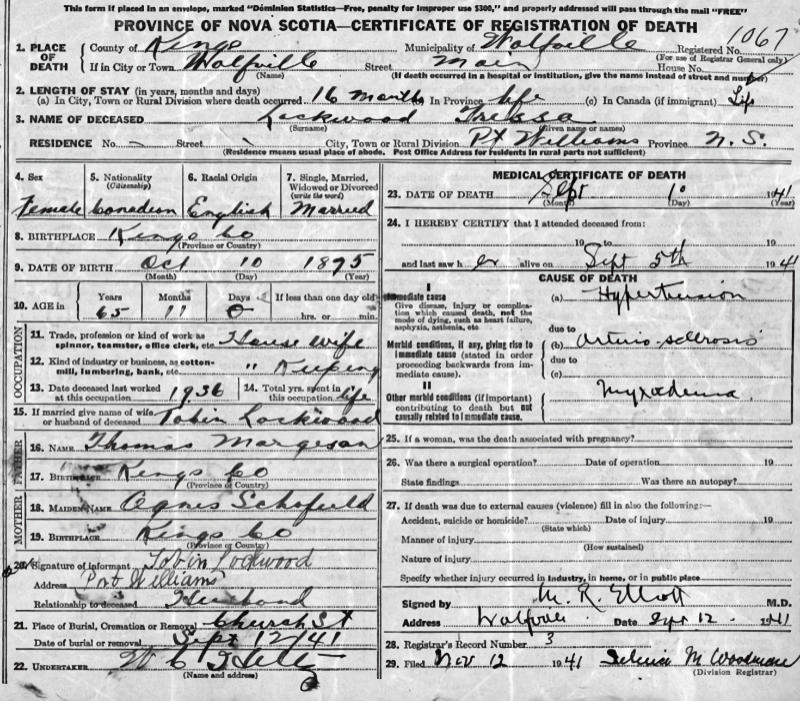 This form if placed in an envelope, marked "Dominion Statistics—Free, penalty for improper use $300," and properly addressed will pass through the mail "FREE"
PROVINCE OF NOVA SCOTIA—CERTIFICATE OF REGISTRATION OF DEATH
1. PLACE OF DEATH
County of Kings Municipality of Wolfville Registered No. 1067
(For use of Registrar General only)
If in City or Town Wolfville Street Main House No.
(Name) (If death occurred in a hospital or institution, give the name instead of street and number)
2. LENGTH OF STAY (in years, months and days)
(a) In City, Town or Rural Division where death occurred 16 months (b) In Province life (c) In Canada (if immigrant) Life
3. NAME OF DECEASED Lockwood Tressa
(Surname) (Given name or names)
RESIDENCE No. - Street City, Town or Rural Division Pt Williams Province N. S.
(Residence means usual place of abode. Post Office Address for residents in rural parts not sufficient)
4. Sex Female
5. Nationality (Citizenship) Canadian
6. Racial Origin English
7. Single, Married, Widowed or Divorced (write the word) Married
8. BIRTHPLACE Kings Co
(Province or Country)
9. DATE OF BIRTH Oct 10 1875
(Month) (Day) (Year)
10. AGE in Years Months Days If less than one day old
65 11 0 hrs. or min.
OCCUPATION
11. Trade, profession or kind of work as spinner, teamster, office clerk, etc. House wife
12. Kind of industry or business, as cotton-mill, lumbering, bank, etc. " Keeping
13. Date deceased last worked at this occupation 1936
14. Total yrs. spent in this occupation life
15. If married give name of wife or husband of deceased Tobin Lockwood
FATHER
16. NAME Thomas Margeson
17. BIRTHPLACE Kings Co
(Province or Country)
MOTHER
18. MAIDEN NAME Agnes Schofield
19. BIRTHPLACE Kings Co
(Province or Country)
20. Signature of informant Tobin Lockwood
Address Port Williams
Relationship to deceased Husband
21. Place of Burial, Cremation or Removal Church St
Date of burial or removal Sept 12/41
22. UNDERTAKER W C
(Name and address)
MEDICAL CERTIFICATE OF DEATH
23. DATE OF DEATH Sept 10 1941
(Month) (Day) (Year)
24. I HEREBY CERTIFY that I attended deceased from:
19 to 19
and last saw her alive on Sept 5th 1941
CAUSE OF DEATH
I
Immediate cause
Give disease, injury or complication which caused death, not the mode of dying, such as heart failure, asphyxia, asthenia, etc.
(a) Hypertension
due to
Morbid conditions, if any, giving rise to immediate cause (stated in order proceeding backwards from immediate cause).
(b) Arterio-sclerosis
due to
(c)
II
Other morbid conditions (if important) contributing to death but not causally related to immediate cause.
Myxodema
25. If a woman, was the death associated with pregnancy?
26. Was there a surgical operation? Date of operation 19
State findings Was there an autopsy?
27. If death was due to external causes (violence) fill in also the following:—
Accident, suicide or homicide? Date of injury 19
(State which)
Manner of injury
(How sustained)
Nature of injury
Specify whether injury occurred in industry, in home, or in public place
Signed by M. R. Elliott M.D.
Address Wolfville Date Sept 12 1941
28. Registrar's Record Number 3
29. Filed Nov 12 1941 M Woodman
(Division Registrar)